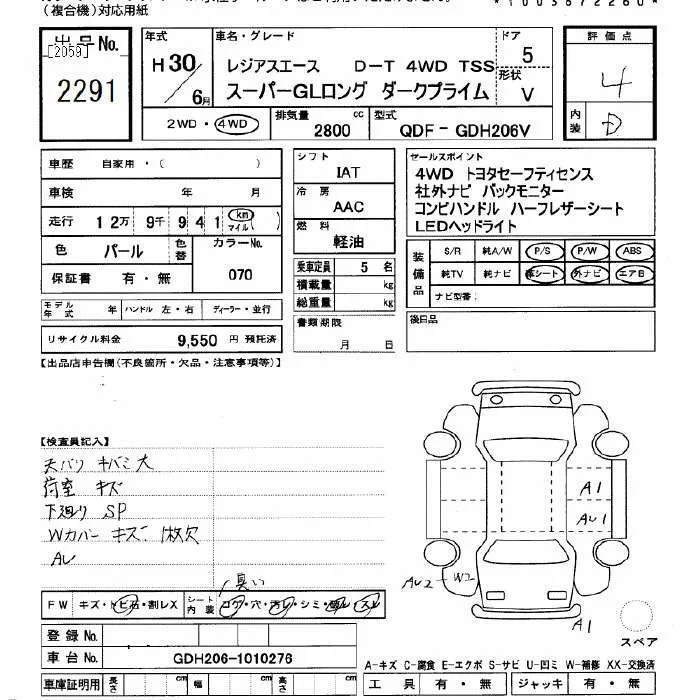 (複合機)対応用紙
*1003672260*
出品No.
[2059]
2291
年式
H30/6月
車名・グレード
レジアスエース D-T 4WD TSS
スーパーGLロング ダークプライム
ドア
5
形状
V
評価点
4
内装
D
2WD・4WD
排気量
2800
cc
型式
QDF-GDH206V
車歴 自家用・( )
車検 年 月
走行 12万9千941 km マイル( )
色 パール 色替 カラーNo. 070
保証書 有・無
モデル年式 年 ハンドル 左・右 ディーラー・並行
リサイクル料金 9,550 円 預託済
シフト
IAT
冷房
AAC
燃料
軽油
乗車定員 5 名
積載量 kg
総重量 kg
書類期限
月 日
セールスポイント
4WD トヨタセーフティセンス
社外ナビ バックモニター
コンビハンドル ハーフレザーシート
LEDヘッドライト
装備品
S/R 純A/W P/S P/W ABS
純TV 純ナビ 革シート 外ナビ エアB
ナビ型番:
後日品
【出品店申告欄(不良箇所・欠品・注意事項等)】
【検査員記入】
天バリ キバミ大
荷室 キズ
下廻り SP
Wカバー キズ 1枚欠
AU
A1
AU1
AU2
W2
A1
スペア
臭い
FW キズ・トビ石・割レX
シート内装 コゲ・穴・汚レ・シミ・
登録No.
車台No. GDH206-1010276
車庫証明用 長さ cm 幅 cm 高さ cm
A-キズ C-腐食 E-エクボ S-サビ U-凹ミ W-補修 XX-交換済
工具 有・無 ジャッキ 有・無